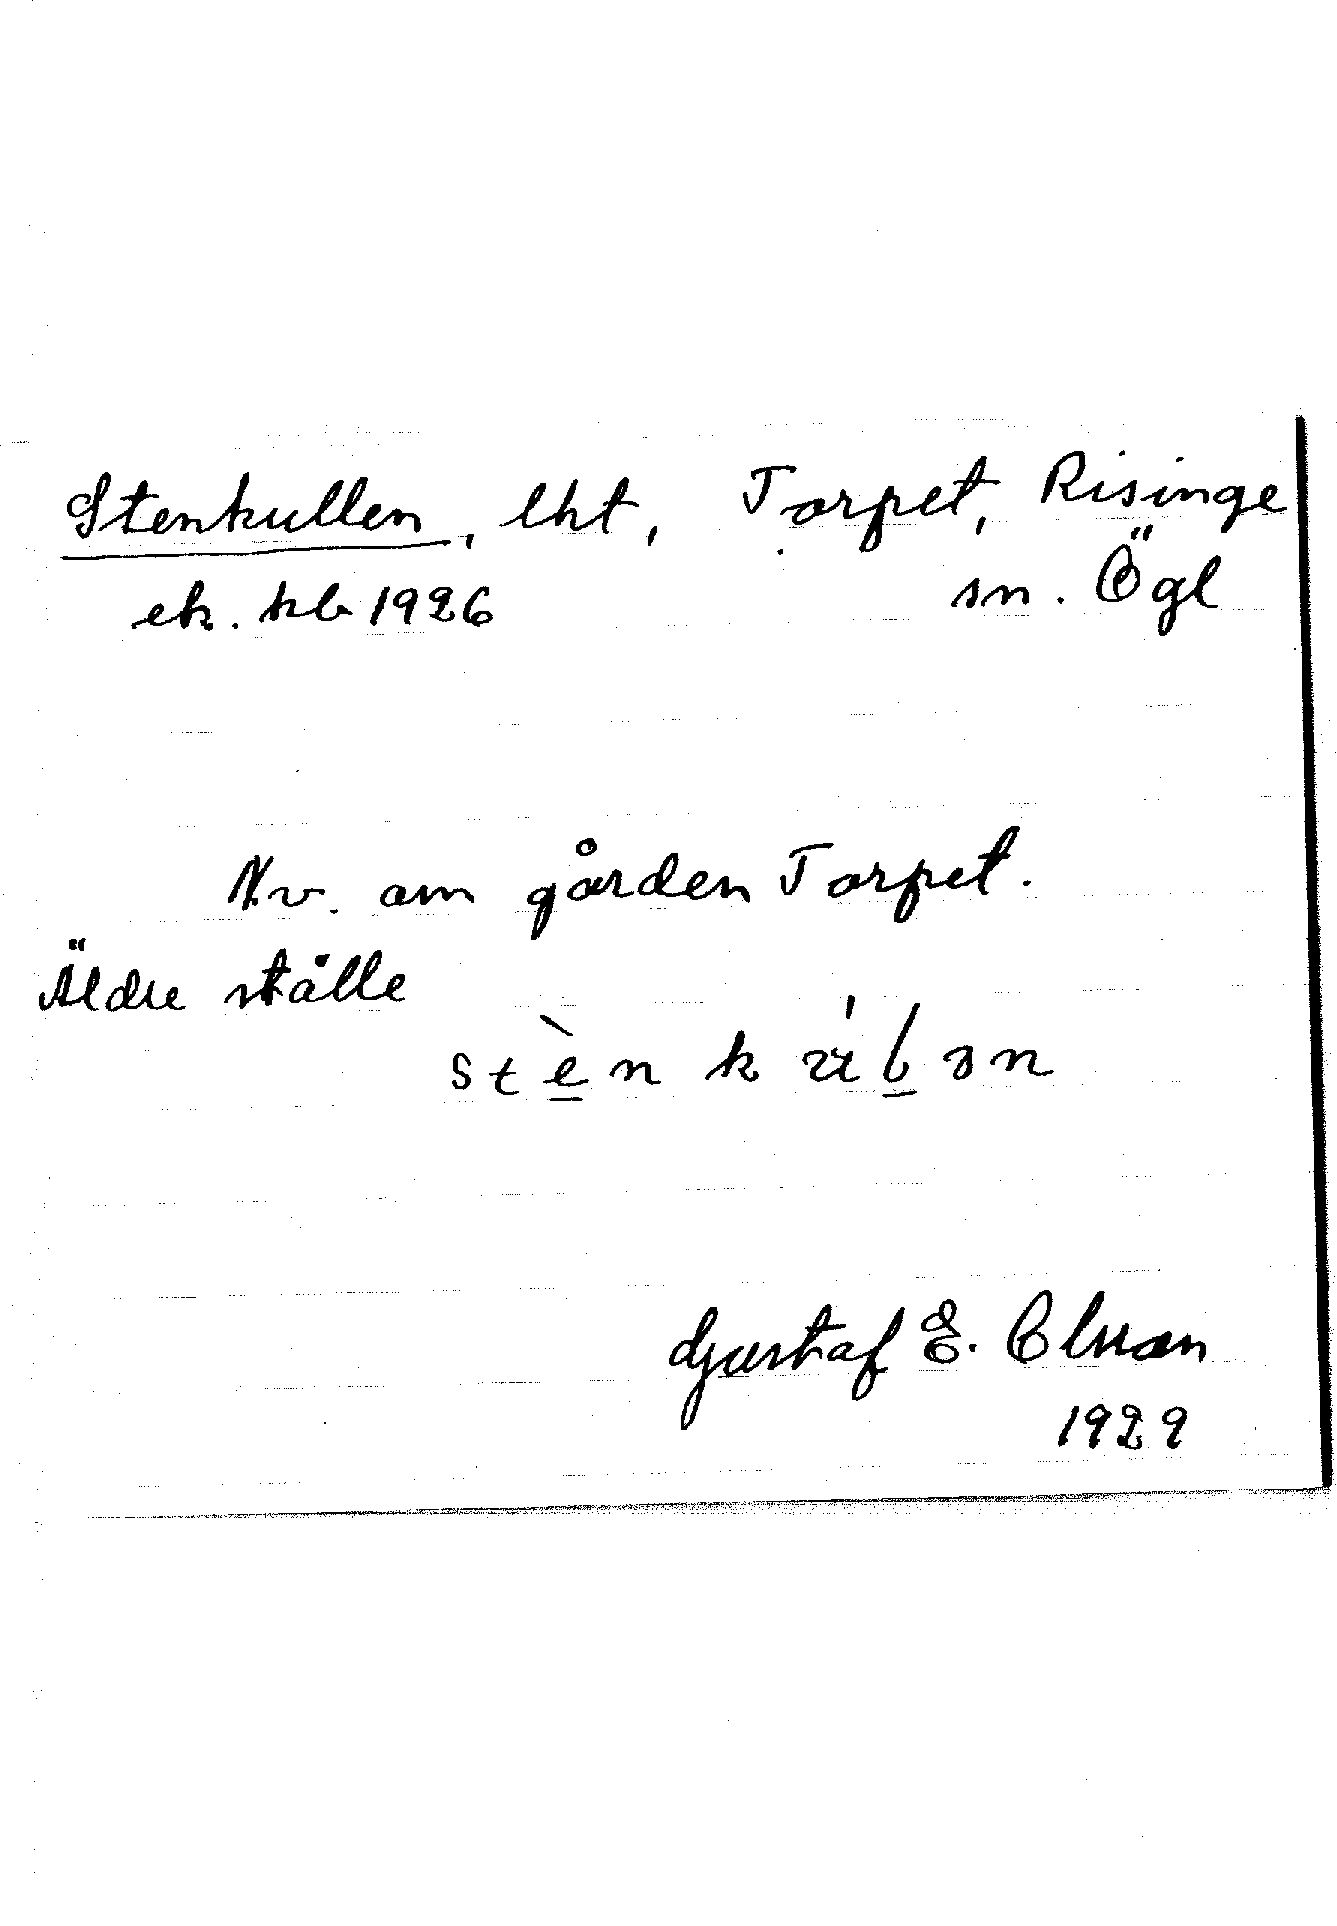 Stenkullen, lht, Torpet, Risinge
ek. kb 1926 sn. Ögl
N.v. om gården Torpet.
Äldre ställe
stèn k
Gustaf E.
1929